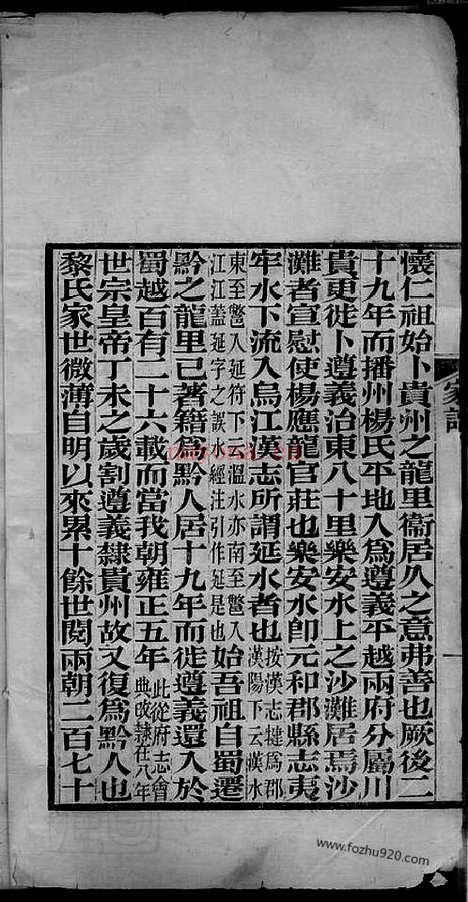 懷仁祖始卜貴州之龍里衞居久之意弗善也厥後二
十九年而播州楊氏平地入爲遵義平越兩府分屬川
貴更徙卜遵義治東八十里樂安水上之沙灘居焉沙
灘者宣慰使楊應龍官莊也樂安水卽元和郡縣志夷
牢水下流入烏江漢志所謂延水者也按漢志犍爲郡漢陽下云漢水
東至鄨入延符下云溫水亦南至鄨入江江蓋延字之誤水經注引作延是也始吾祖自蜀遷
黔之龍里已著籍爲黔人居十九年而徙遵義還入於
蜀越百有二十六載而當我朝雍正五年此從府志會典改隸在八年
世宗皇帝丁未之歲割遵義隸貴州故又復爲黔人也
黎氏家世微薄自明以來累十餘世閱兩朝二百七十
家譜
www.fozhu920.com